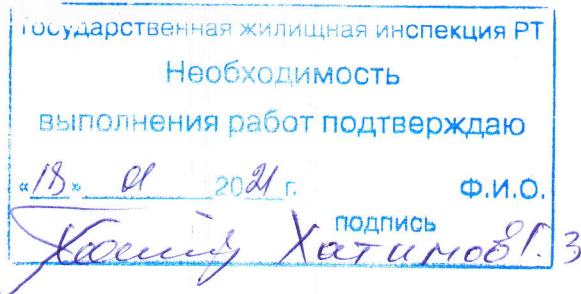 Государственная жилищная инспекция РТ
Необходимость
выполнения работ подтверждаю
«18» 01 2021 г. Ф.И.О.
подпись
Хатимов Г. З